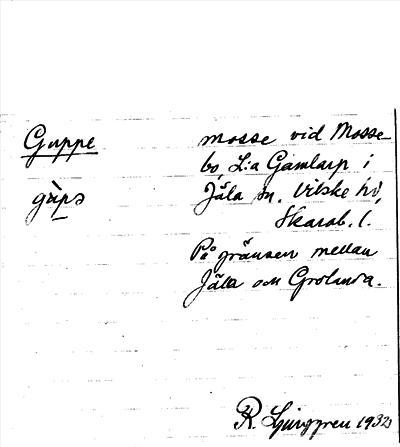 Guppe
gùpə
mosse vid Mosse-
bo, L:a Gamlarp i
Jäla sn, Vilske hd,
Skarab. l.
På gränsen mellan
Jäla och Grolanda.
R. Ljunggren 1932